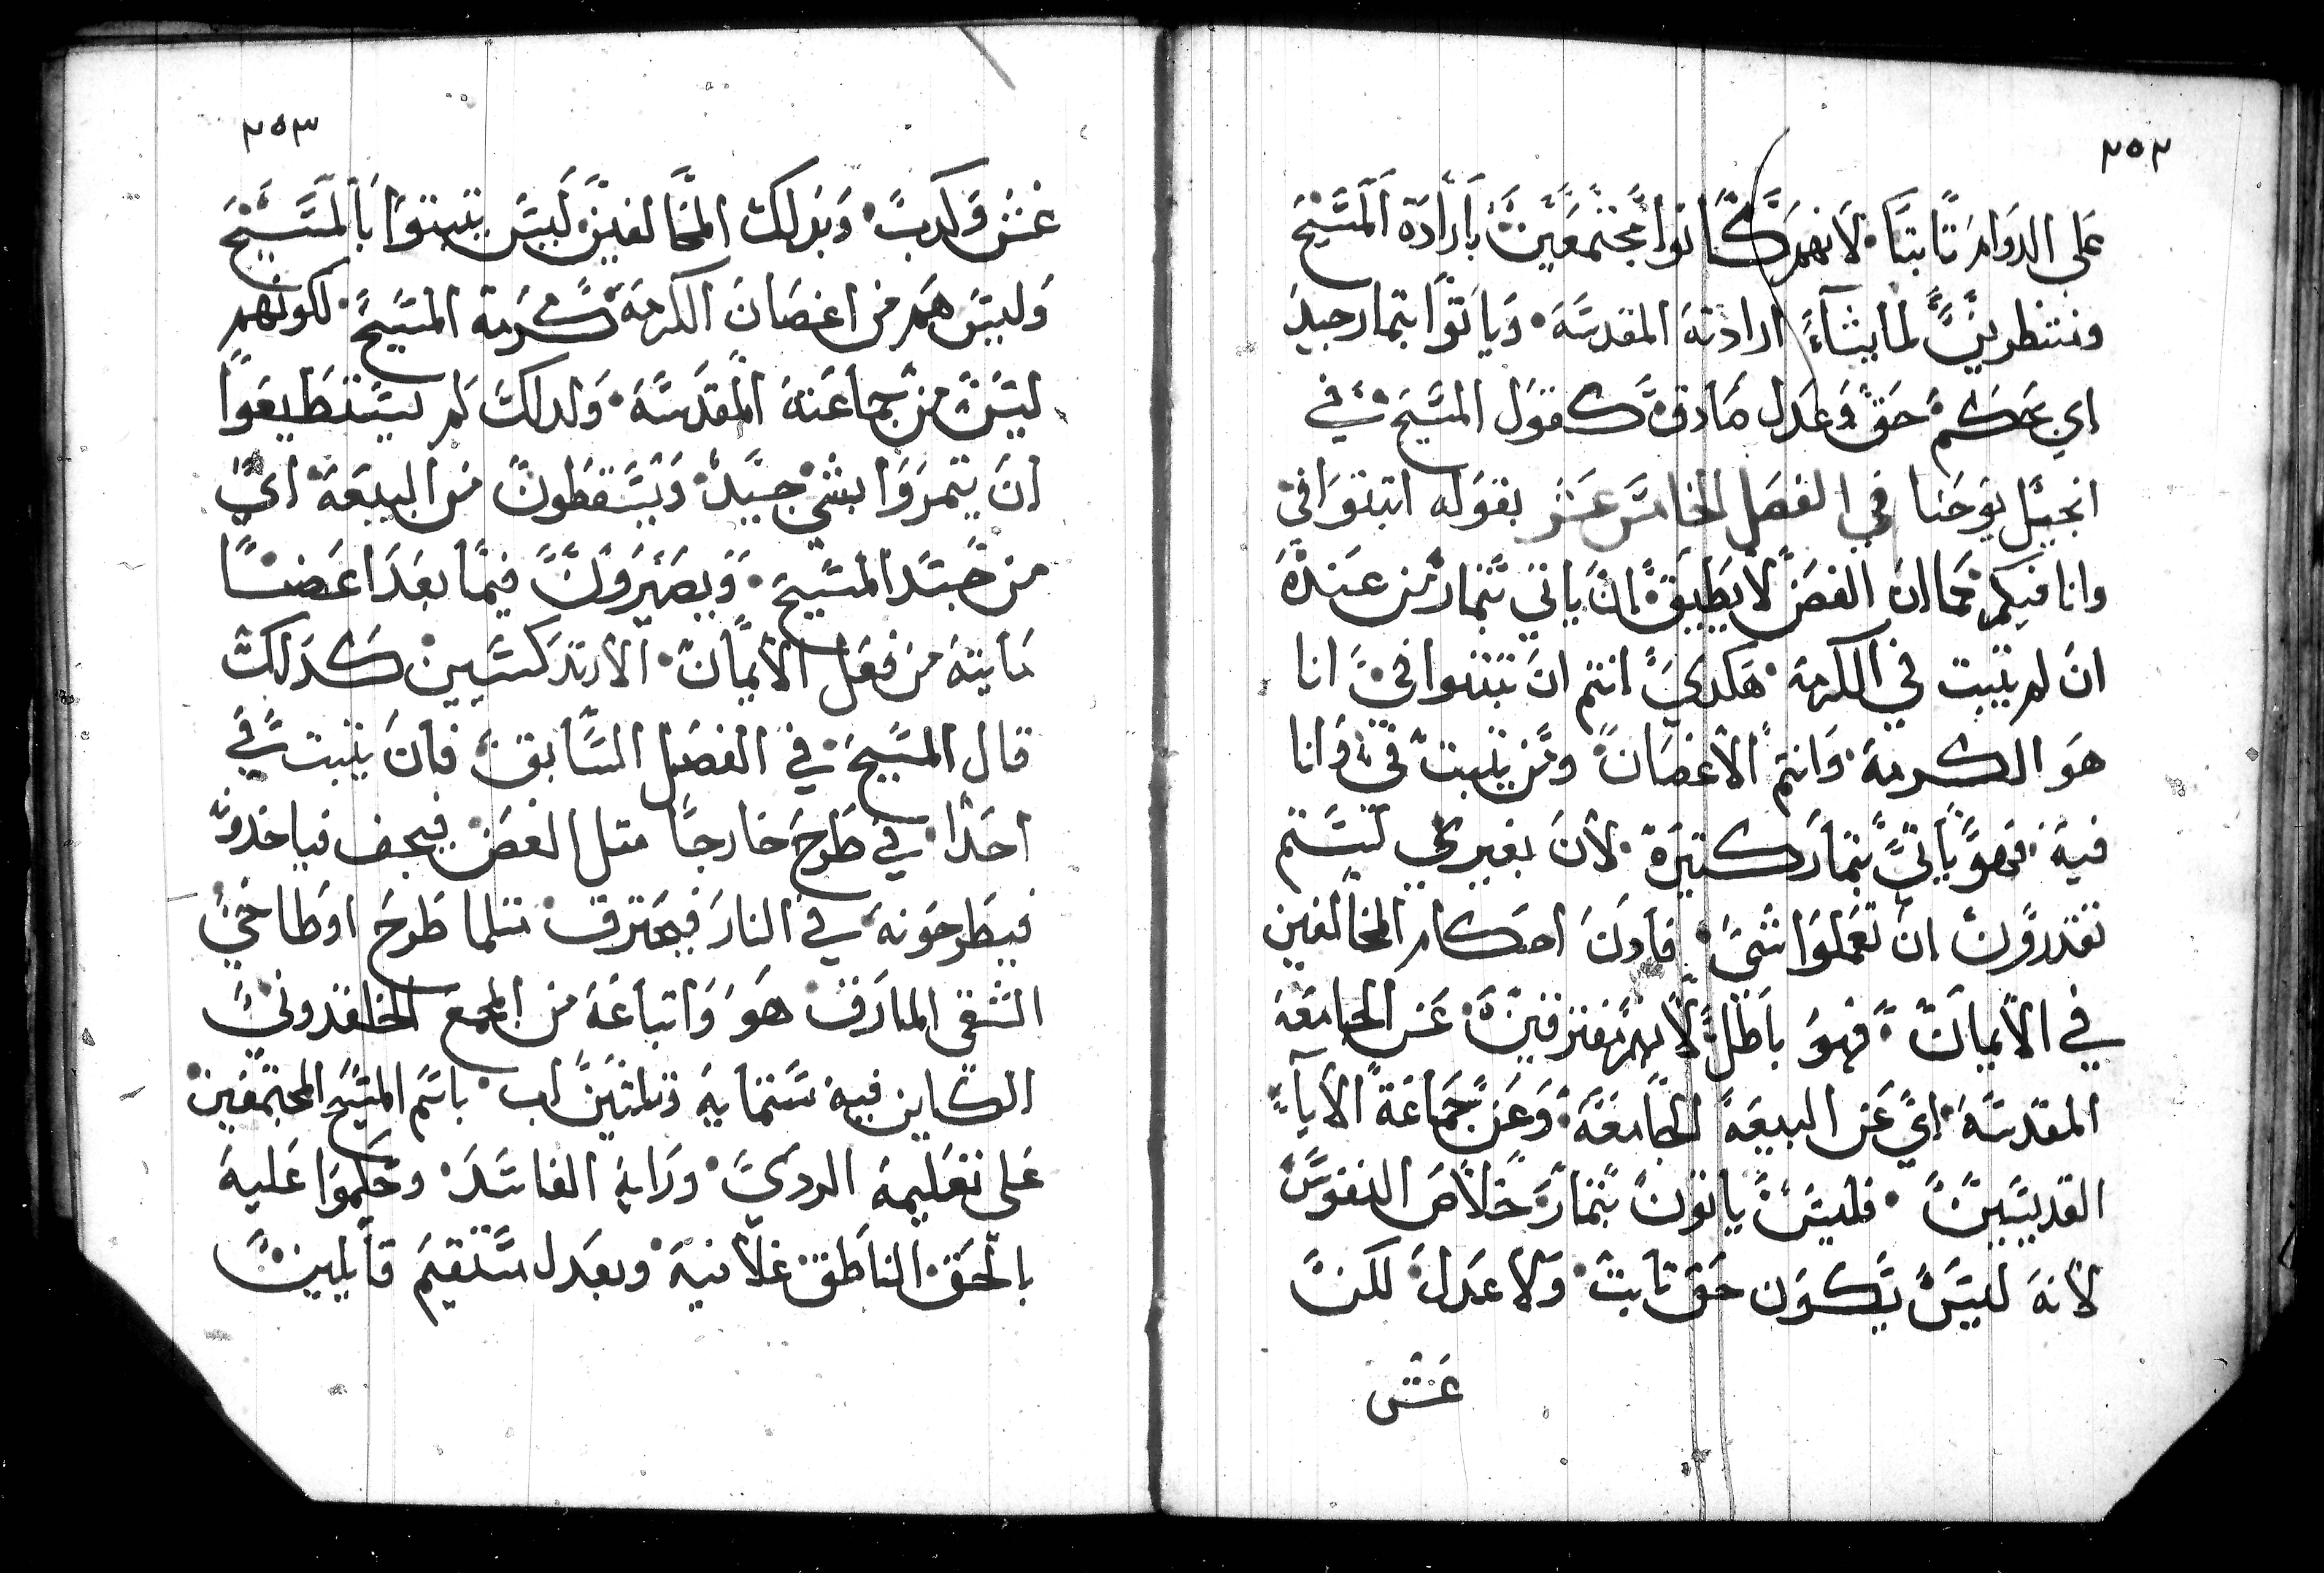 ٢٥٢
على الدوام تابتا لانهم كانوا مجتمعين بارادة المسيح
ومنتظرين لما يشاء ارادته المقدسه وياتوا بتمار جيد
اي بحكم حق وعدل صادق كقول المسيح في
انجيل يوحنا في الفصل الخامس عشر بقوله اتبتوا في
وانا فيكم كما ان الغصن لا يطيق ان ياتي بتمار من عنده
ان لم يتبت في الكرمه هكدي انتم ان تتبتوا في انا
هو الكرمه وانتم الاغصان ومن يتبت في وانا
فيه فهو ياتي بتمار كتيرة لان بغيري لستم
تقدرون ان تعملوا شي فادن احكام المخالفين
في الايمان فهو باطل لانهم مفترقين عن الجامعه
المقدسه اي عن البيعه الجامعه وعن جماعة الاباء
القديسين فليس ياتون بتمار خلاص النفوس
لانه ليس يكون حق تابت ولا عدل لكن
غش
٢٥٣
غش وكدب وبدلك المخالفين ليس يتبتوا بالمسيح
وليس هم من اغصان الكرمه كرمة المسيح لكونهم
ليس من جماعته المقدسه ولدلك لم يستطيعوا
ان يتمروا بشي جيد ويسقطون من البيعه اي
من جسد المسيح ويصيرون فيما بعد اعضا
مايته من فعل الايمان الارتدكسيين كدلك
قال المسيح في الفصل السابق فان يتبت في
احدا في طرح خارجا متل الغصن فيجف فياخدو
فيطرحونه في النار فيحترق متلما طرح اوطاخي
الشقي المارق هو واتباعه من المجمع الخلقدوني
الكاين فيه ستمايه وتلتين اب باسم المسيح المجتمعين
على تعليمه الردي ورايه الفاسد وحكموا عليه
بالحق الناطق علانيه وبعدل مستقيم قايلين